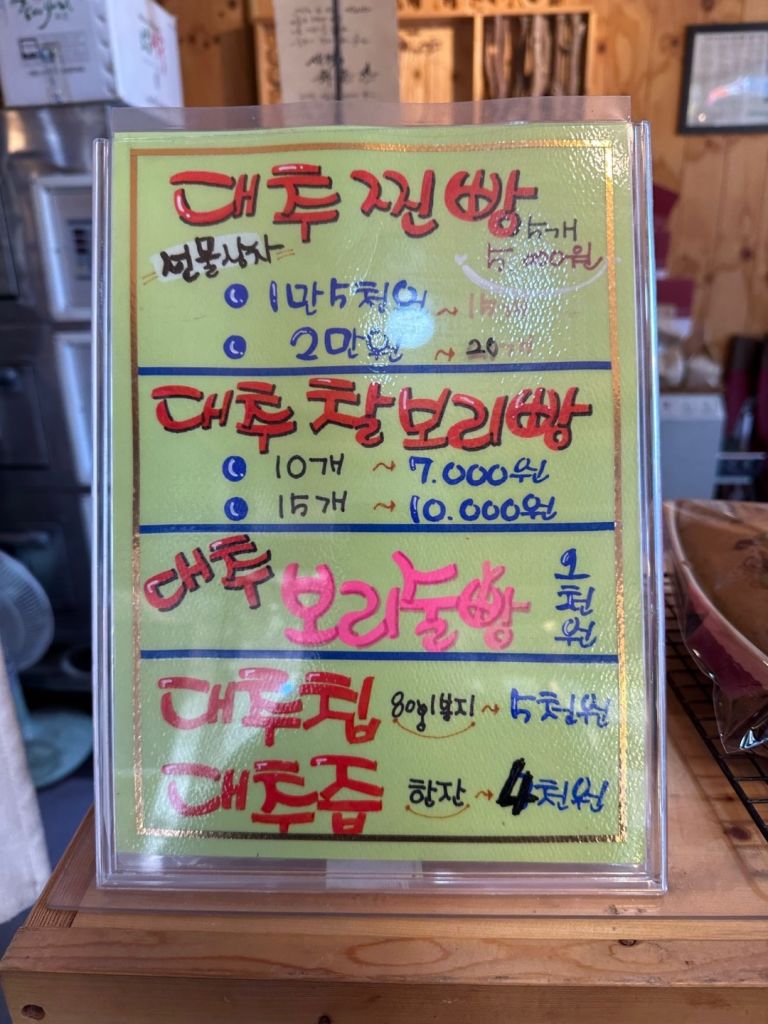 대추찐빵
5개
5,000원
선물상자
1만5천원 ~ 15개
2만원 ~ 20개
대추찰보리빵
10개 ~ 7.000원
15개 ~ 10.000원
대추 보리술빵 오천원
대추칩 80g 1봉지 ~ 5천원
대추즙 한잔 ~ 4천원